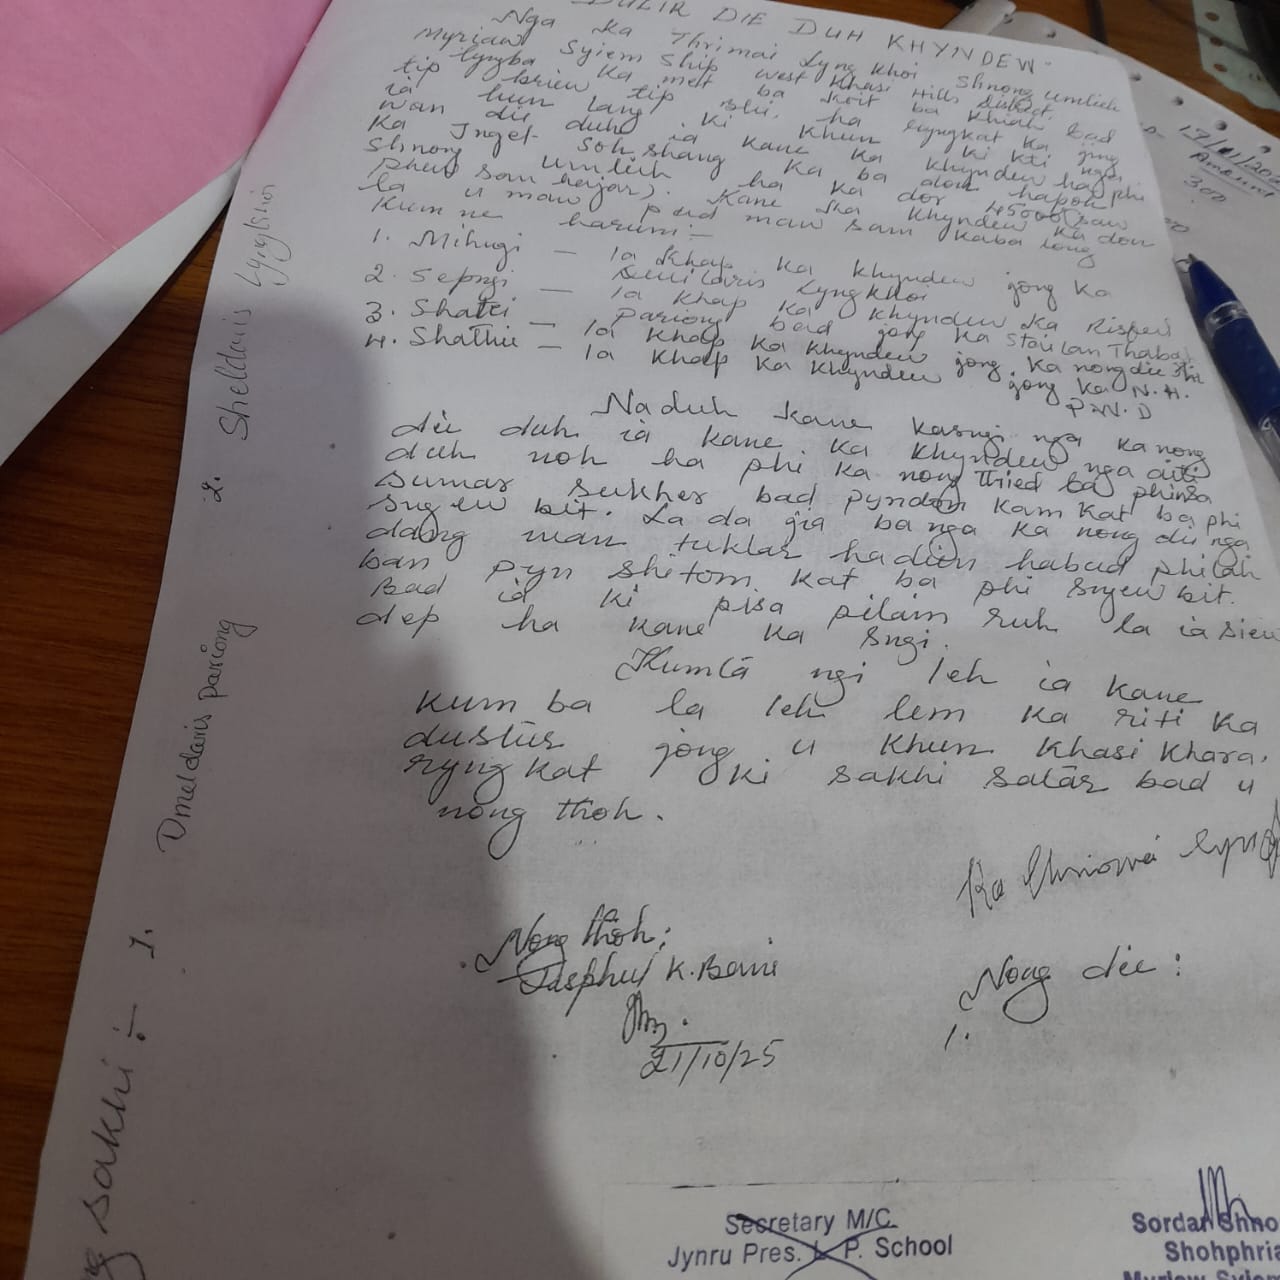 DULIR DIE DUH KHYNDEW.
Nga Ka Thrimai Lyngkhoi Shnong Umlieh
Myriaw Syiem Ship West Khasi Hills District.
lyngba Ka met ba koit ba khiah bad
tip briew tip blei, ha ryngkat ka jing
ia hun lang ki khun ki kti nga
wan die duh ia kane ka khyndew ha phi
Ka Inget Sohshang Ka ba don hapoh
Shnong Umlieh ha ka dor 45000 (saw
phew san hajar). Kane ka khyndew ka don
la u maw pud maw sam kaba long
Kum ne harum:-
1. Mihngi — Ia khap ka khyndew jong ka
Lyngkhoi
2. Sepngi — Ia khap ka khyndew ka
Pariong bad jong ka Thabah
3. Shatei — Ia khap ka khyndew jong ka nongdie
4. Shathie — Ia khap ka khyndew jong ka N.H.
P.W.D
Naduh kane kasngi nga ka nong
die duh ia kane ka khyndew nga aiti
duh noh ha phi ka nong thied ba phin sa
sumar sukher bad pyndon kam kat ba phi
sngew bit. La da jia ba nga ka nong die nga
dang wan tuklar hadien habud phi lah
ban pyn shitom kat ba phi sngew bit.
Bad ia ki pisa pilain ruh la ia siew
dep ha kane ka sngi.
Kumta ngi leh ia kane
kum ba la leh lem ka riti ka
dustur jong u khun khasi khara,
ryngkat jong ki sakhi salar bad u
nong thoh.
Ka Thrimai
Nong thoh:
K. Bani
21/10/25
Nong die:
1.
sakhi:- 1. Dmeldaris pariong
2. Sheldaris Lyngkhoi
Secretary M/C.
Jynru Pres. L. P. School
Sordar Shno
Shohphria
17/1/202
Amount
300